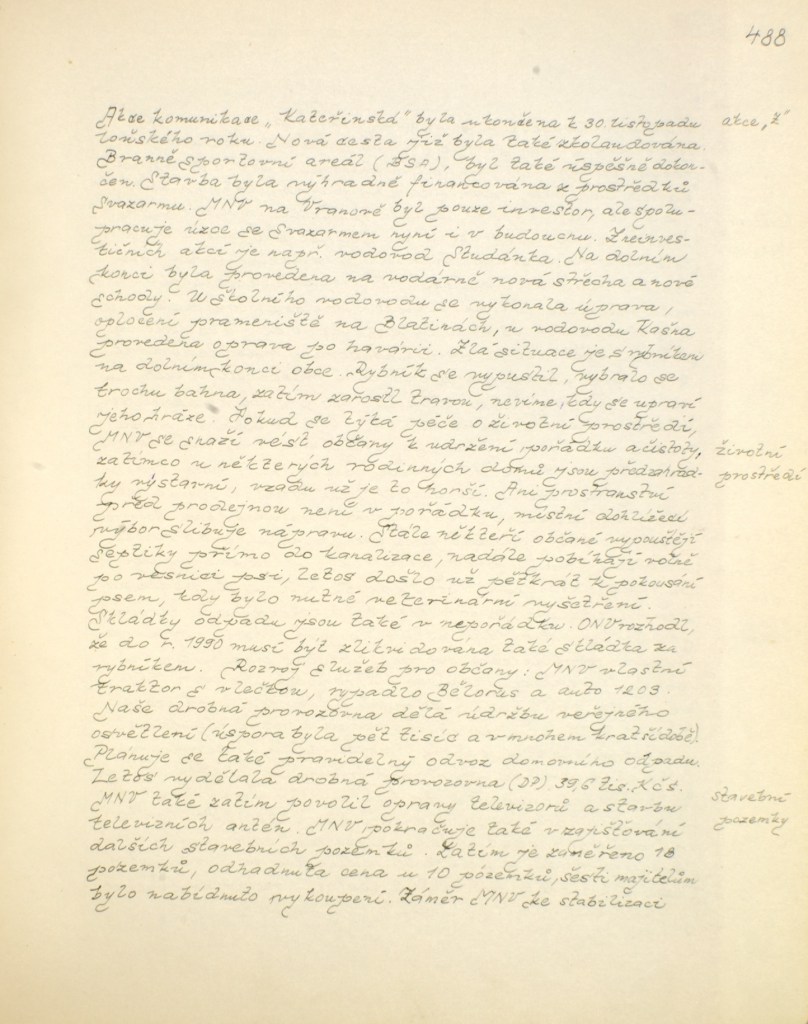 488
Akce komunikace „Kateřinská" byla ukončena k 30. listopadu
akce „Z"
loňského roku. Nová cesta již byla také zkolaudována.
Branně sportovní areál (BSA), byl také úspěšně dokon-
čen. Stavba byla výhradně financována z prostředků
Svazarmu. MNV na Vranově byl pouze investor, ale spolu-
pracuje úzce se Svazarmem nyní i v budoucnu. Z neinves-
tičních akcí je např. vodovod Studánka. Na dolním
konci byla provedena na vodárně nová střecha a nové
schody. U školního vodovodu se vykonala úprava,
oplocení prameniště na Blatinách, u vodovodu Kašna
provedena oprava po havárii. Zlá situace je s rybníkem
na dolním konci obce. Rybník se vypustil, vybralo se
trochu bahna, zatím zarostl travou, nevíme, kdy se upraví
jeho hráze. Pokud se týká péče o životní prostředí,
MNV se snaží vést občany k udržení pořádku a čistoty,
životní
zatímco u některých rodinných domů jsou předzahrád-
prostředí
ky výstavní, vzadu už je to horší. Ani prostranství
před prodejnou není v pořádku, místní dohlížecí
výbor slibuje nápravu. Stále někteří občané vypouštějí
septiky přímo do kanalizace, nadále pobíhají volně
po vesnici psi, letos došlo už pětkrát k pokousání
psem, kdy bylo nutné veterinární vyšetření.
Skládky odpadu jsou také v nepořádku. ONV rozhodl,
že do r. 1990 musí být zlikvidována také skládka za
rybníkem. Rozvoj služeb pro občany: MNV vlastní
traktor s vlečkou, rypadlo Bělorus a auto 1203.
Naše drobná provozovna dělá údržbu veřejného
osvětlení (úspora byla pět tisíc a v mnohem kratší době).
Plánuje se také pravidelný odvoz domovního odpadu.
Letos vydělala drobná provozovna (DP) 39,6 tis. Kčs.
MNV také zatím povolil opravy televizorů a stavbu
stavební
televizních antén. MNV pokračuje také v zajišťování
pozemky
dalších stavebních pozemků. Zatím je zaměřeno 18
pozemků, odhadnuta cena u 10 pozemků, šesti majitelům
bylo nabídnuto vykoupení. Záměr MNV ke stabilizaci